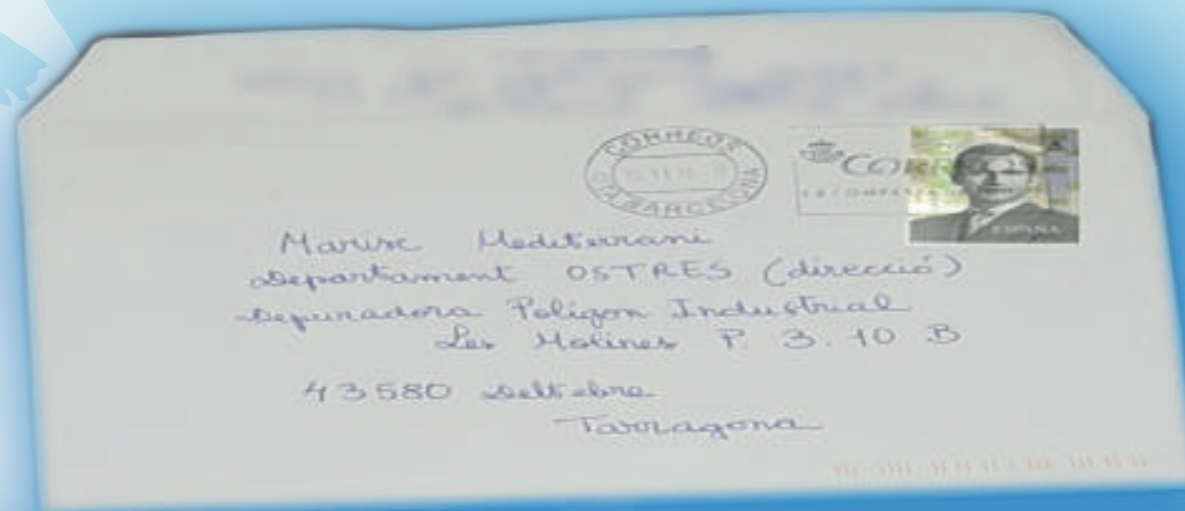 CORREOS
BARCELONA
CORREOS
ESPAÑA
Marisc Mediterrani
Departament OSTRES (direcció)
Depuradora Polígon Industrial
Les Molines P. 3. 10 B
43580 Deltebre
Tarragona